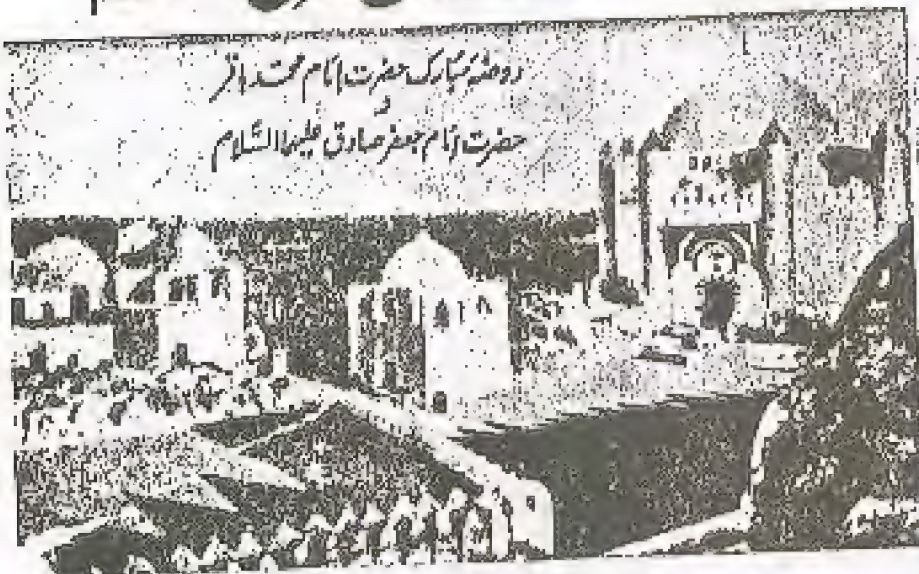 روضہ مبارک حضرت امام محمد باقر
و
حضرت امام جعفر صادق علیہما السّلام